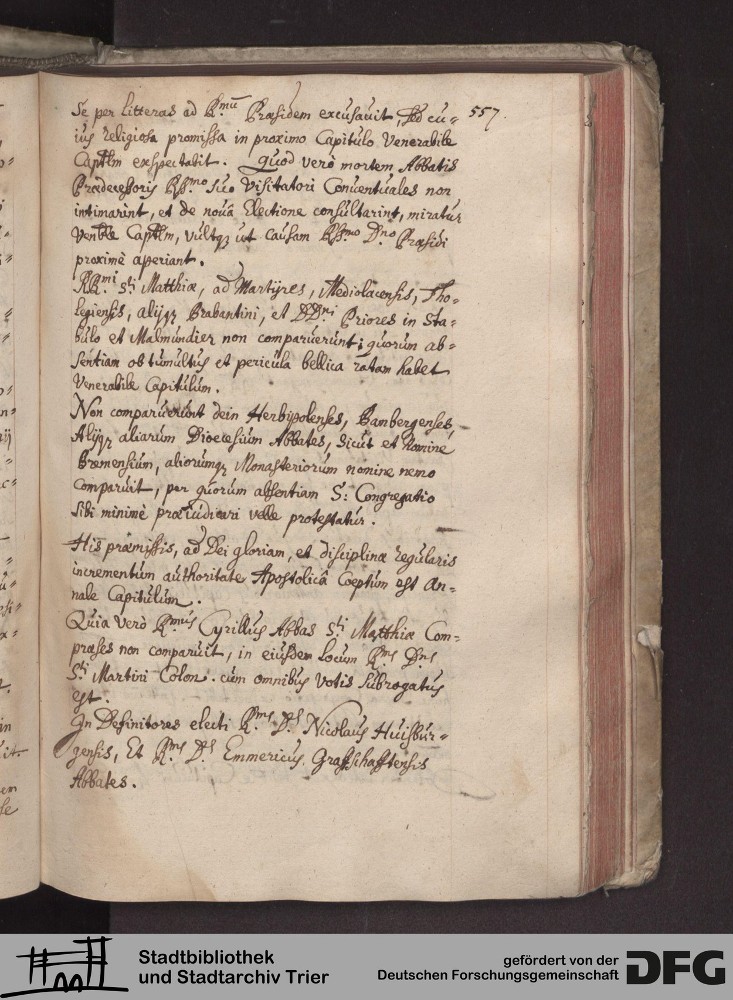 557.
Se per litteras ad R.mu Præsidem excusavit, sed cu=
ius religiosa promissa in proximo Capitulo Venerabile
Captlm exspectabit. Quod verò mortem Abbatis
Prædecessoris Rss.mo suo Visitatori Conventuales non
intimarint, et de novâ Electione consultarint, miratur
Venble Captlm, vultqz ut causam Rss.mo D.no Præsidi
proximè aperiant.
RR.mi S.ti Matthiæ, ad Martyres, Mediolacensis, Tho=
legiensis, alijqz Brabantini, et DD.ni Priores in Sta=
bulo et Malmundier non comparuerunt; quorum ab=
sentiam ob tumultus et pericula bellica ratam habet
Venerabile Capitulum.
Non comparuerunt dein Herbipolenses, Bambergenses,
Alijqz aliarum Dioecesium Abbates, sicut et Nomine
Bremensium, aliorumqz Monasteriorum nomine nemo
comparuit, per quorum absentiam S: Congregatio
sibi minimè præiudicari velle protestatur.
His præmissis, ad Dei gloriam, et disciplinæ regularis
incrementum authoritate Apostolicâ Coeptum est An=
nale Capitulum.
Quia verò R.mus Cyrillus Abbas S.ti Matthiæ Com=
præses non comparuit, in eiusdem locum R.ms D.ns
S.ti Martini Colon. cum omnibus votis subrogatus
est.
In Definitores electi R.ms D.s Nicolaus Huisbur=
gensis, Et R.ms D.s Emmericus Graffschafftensis
Abbates.
Stadtbibliothek
und Stadtarchiv Trier
gefördert von der
Deutschen Forschungsgemeinschaft
DFG